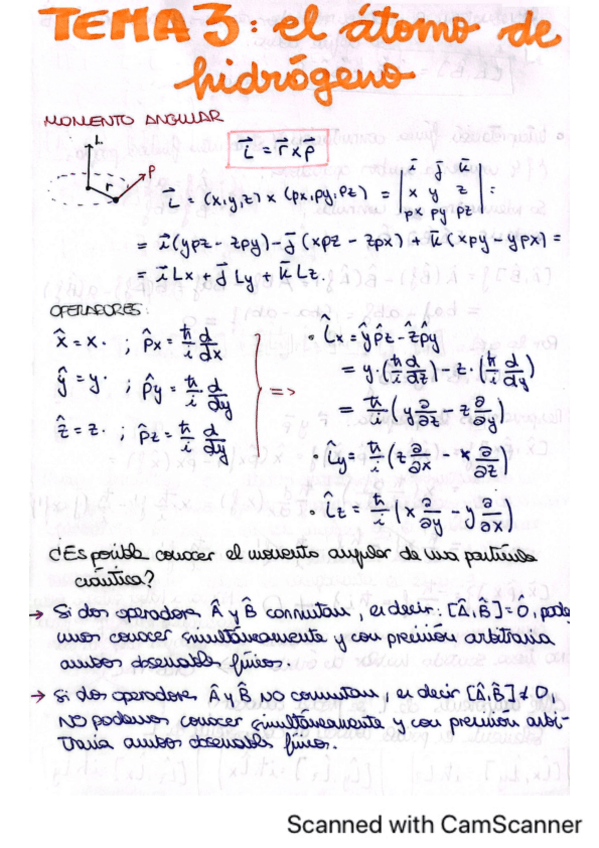 TEMA 3: el átomo de
hidrógeno
MOMENTO ANGULAR
L
r
P
L⃗ = r⃗ x p⃗
L⃗ = (x,y,z) x (px,py,pz) = | i⃗ j⃗ k⃗ | x y z | px py pz | =
= i⃗(ypz - zpy) - j⃗(xpz - zpx) + k⃗(xpy - ypx) =
= i⃗ Lx + j⃗ Ly + k⃗ Lz.
OPERADORES:
x̂ = x· ; p̂x = ħ/i d/dx
ŷ = y· ; p̂y = ħ/i d/dy
ẑ = z· ; p̂z = ħ/i d/dy
=>
· L̂x = ŷp̂z - ẑp̂y
= y·(ħ/i d/dz) - z·(ħ/i d/dy)
= ħ/i (y ∂/∂z - z ∂/∂y)
· L̂y = ħ/i (z ∂/∂x - x ∂/∂z)
· L̂z = ħ/i (x ∂/∂y - y ∂/∂x)
¿Es posible conocer el momento angular de una partícula
cuántica?
→ Si dos operadores Â y B̂ conmutan, es decir: [Â,B̂] = 0̂, pode
mos conocer simultáneamente y con precisión arbitraria
ambos observables físicos.
→ Si dos operadores Â y B̂ NO conmutan, es decir [Â,B̂] ≠ 0,
NO podemos conocer simultáneamente y con precisión arbi-
traria ambos observables físicos.
Scanned with CamScanner